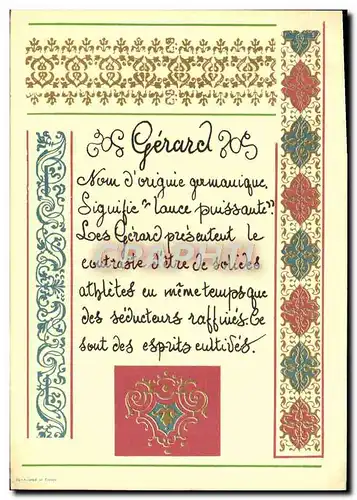 Gérard
Nom d'origine germanique.
Signifie "lance puissante".
Les Gérard présentent le
contraste d'être de solides
athlètes en même temps que
des séducteurs raffinés. Ce
sont des esprits cultivés.